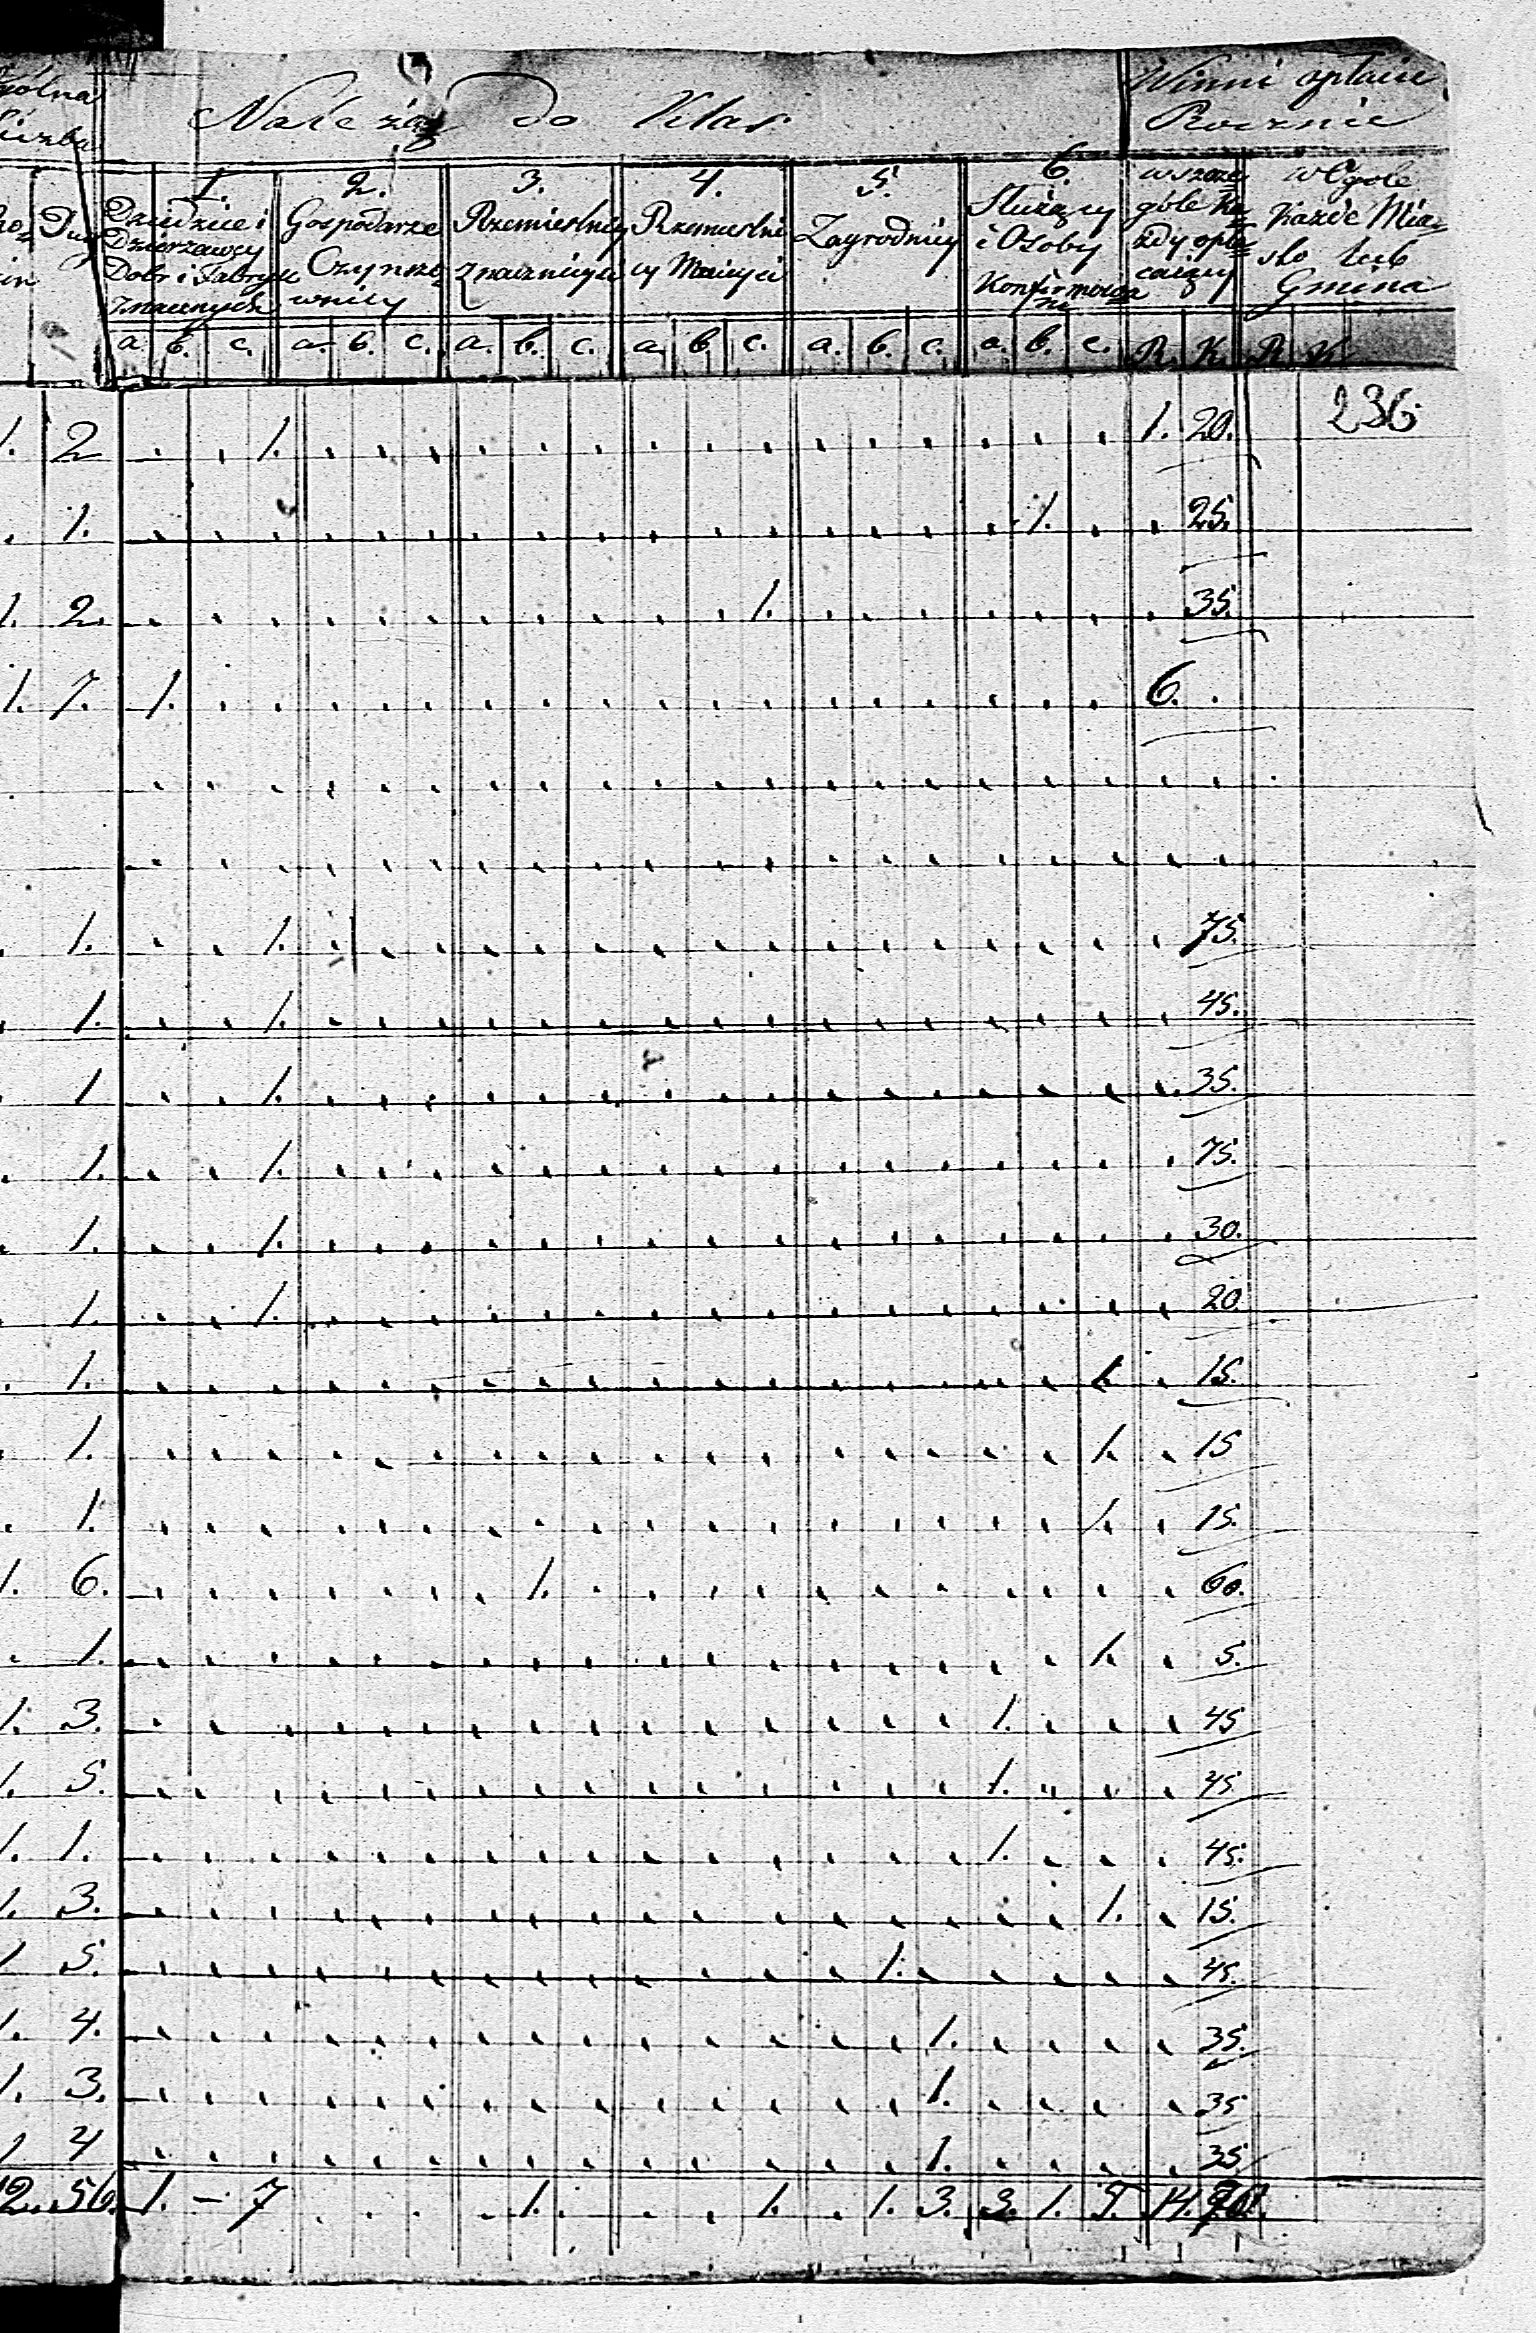 Ogólna Liczba
Należą do Klas
Winni opłacić Rocznie
Dusz
1. Dziedzice i Dzierzawcy Dobr i Fabryk znacznych
2. Gospodarze Czynszownicy
3. Rzemieslnicy znacznieysi
4. Rzemieslnicy Mnieysi
5. Zagrodnicy
6. Służący i Osoby
w szczególe każdy opłacaiący
w Ogóle każde Miasto lub Gmina
a. b. c. a. b. c. a. b. c. a. b. c. a. b. c. a. b. c. R. K. R. K.
236
1. 2 1. 1. 20.
1. 1. 25.
1. 2. 1. 35.
1. 7. 1. 6.
1. 1. 75.
1. 1. 45.
1 1. 35.
1. 1. 75.
1. 1. 30.
1. 1. 20.
1. 1. 15.
1. 1. 15
1. 1. 15.
1. 6. 1. 60.
1. 1. 5.
1. 3. 1. 45
1. 5. 1. 45
1. 1. 1. 45.
1. 3. 1. 15.
1 5. 1. 45.
1. 4. 1. 35.
1. 3. 1. 35
1 4 1. 35
12. 56. 1. – 7 1. 1. 1. 3. 3. 1. 5. 14.